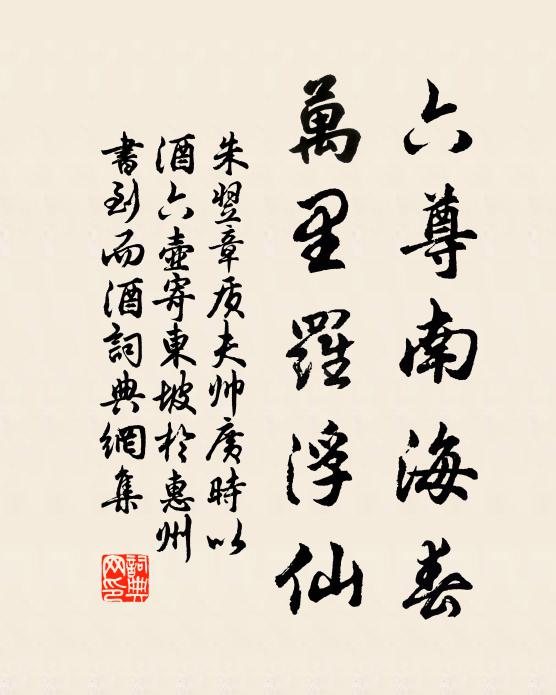 六尊南海春
萬里羅浮仙
朱翌章质夫帅廣時以
酒六壺寄東坡於惠州
書到而酒詞典網集
詞典網印